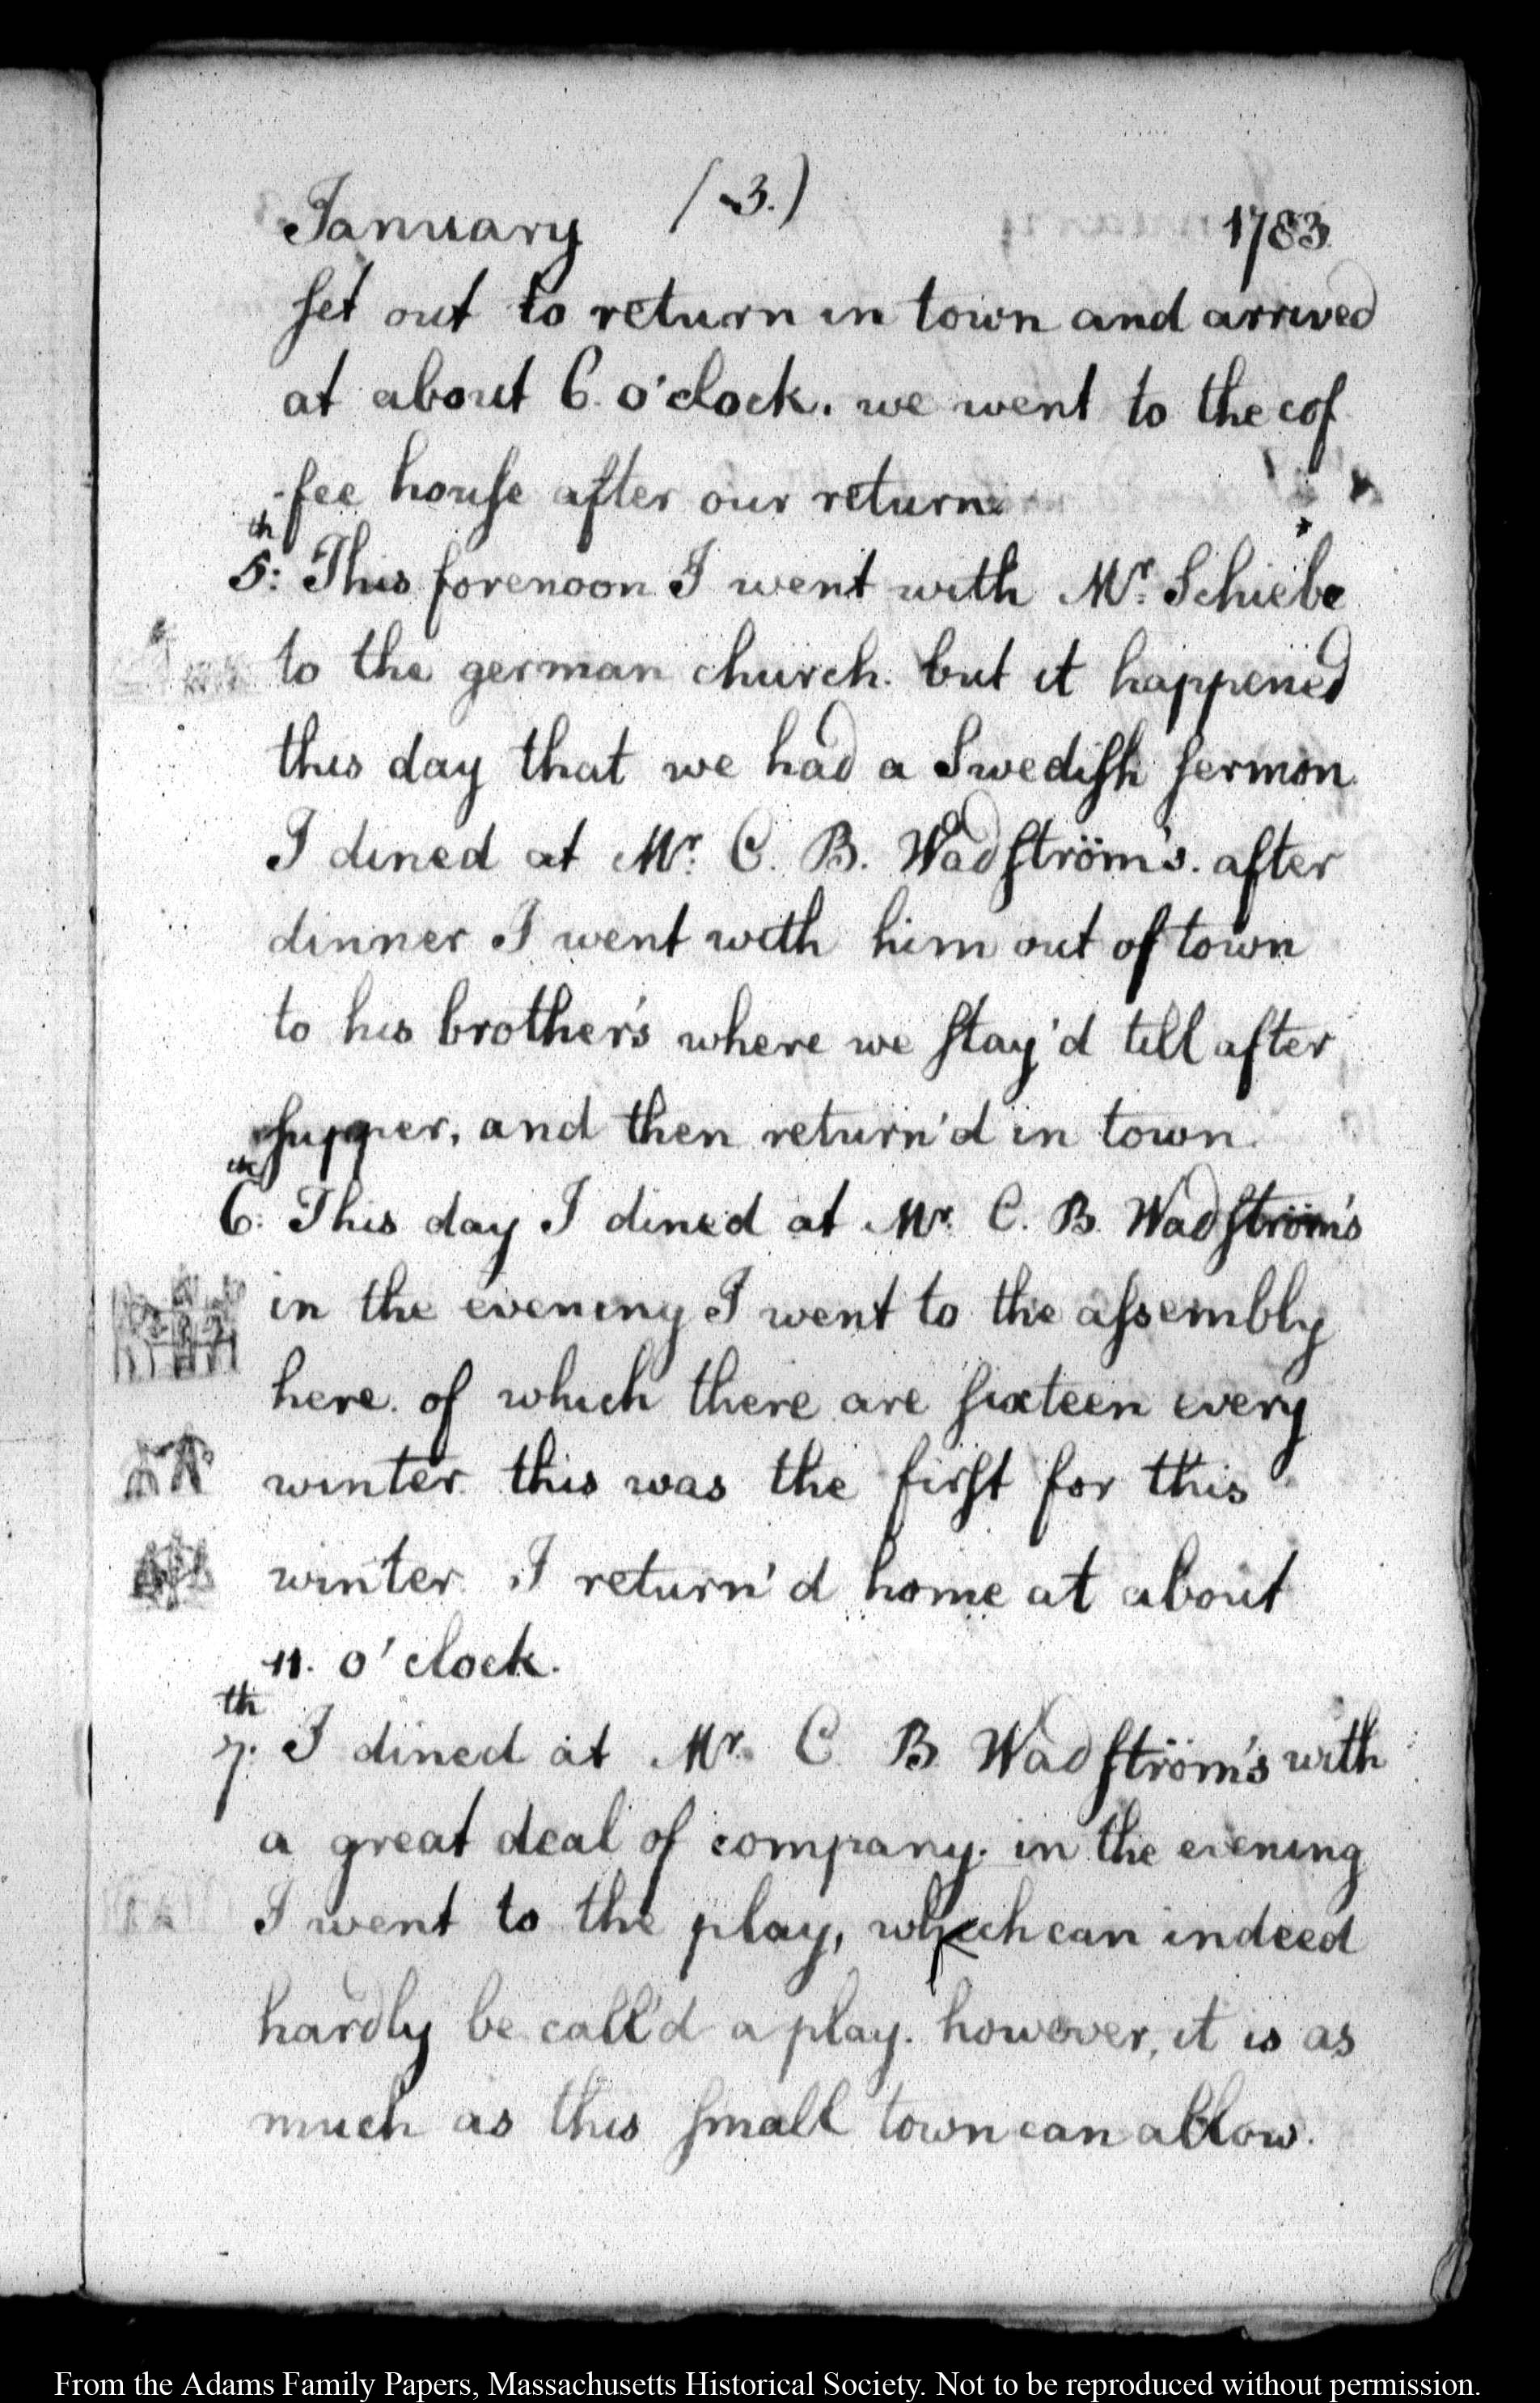 January (3.) 1783
set out to return in town and arrived
at about 6 o'clock. we went to the cof
-fee house after our return.
5:th This forenoon I went with Mr. Schiebe
to the german church. but it happened
this day that we had a Swedish sermon.
I dined at Mr. C. B. Wadström's. after
dinner I went with him out of town
to his brother's where we stay'd till after
supper, and then return'd in town.
6:th This day I dined at Mr. C. B. Wadström's
in the evening I went to the assembly
here. of which there are sixteen every
winter. this was the first for this
winter. I return'd home at about
11. o'clock.
7.th I dined at Mr. C. B. Wadström's with
a great deal of company. in the evening
I went to the play, which can indeed
hardly be call'd a play. however, it is as
much as this small town can allow.
From the Adams Family Papers, Massachusetts Historical Society. Not to be reproduced without permission.